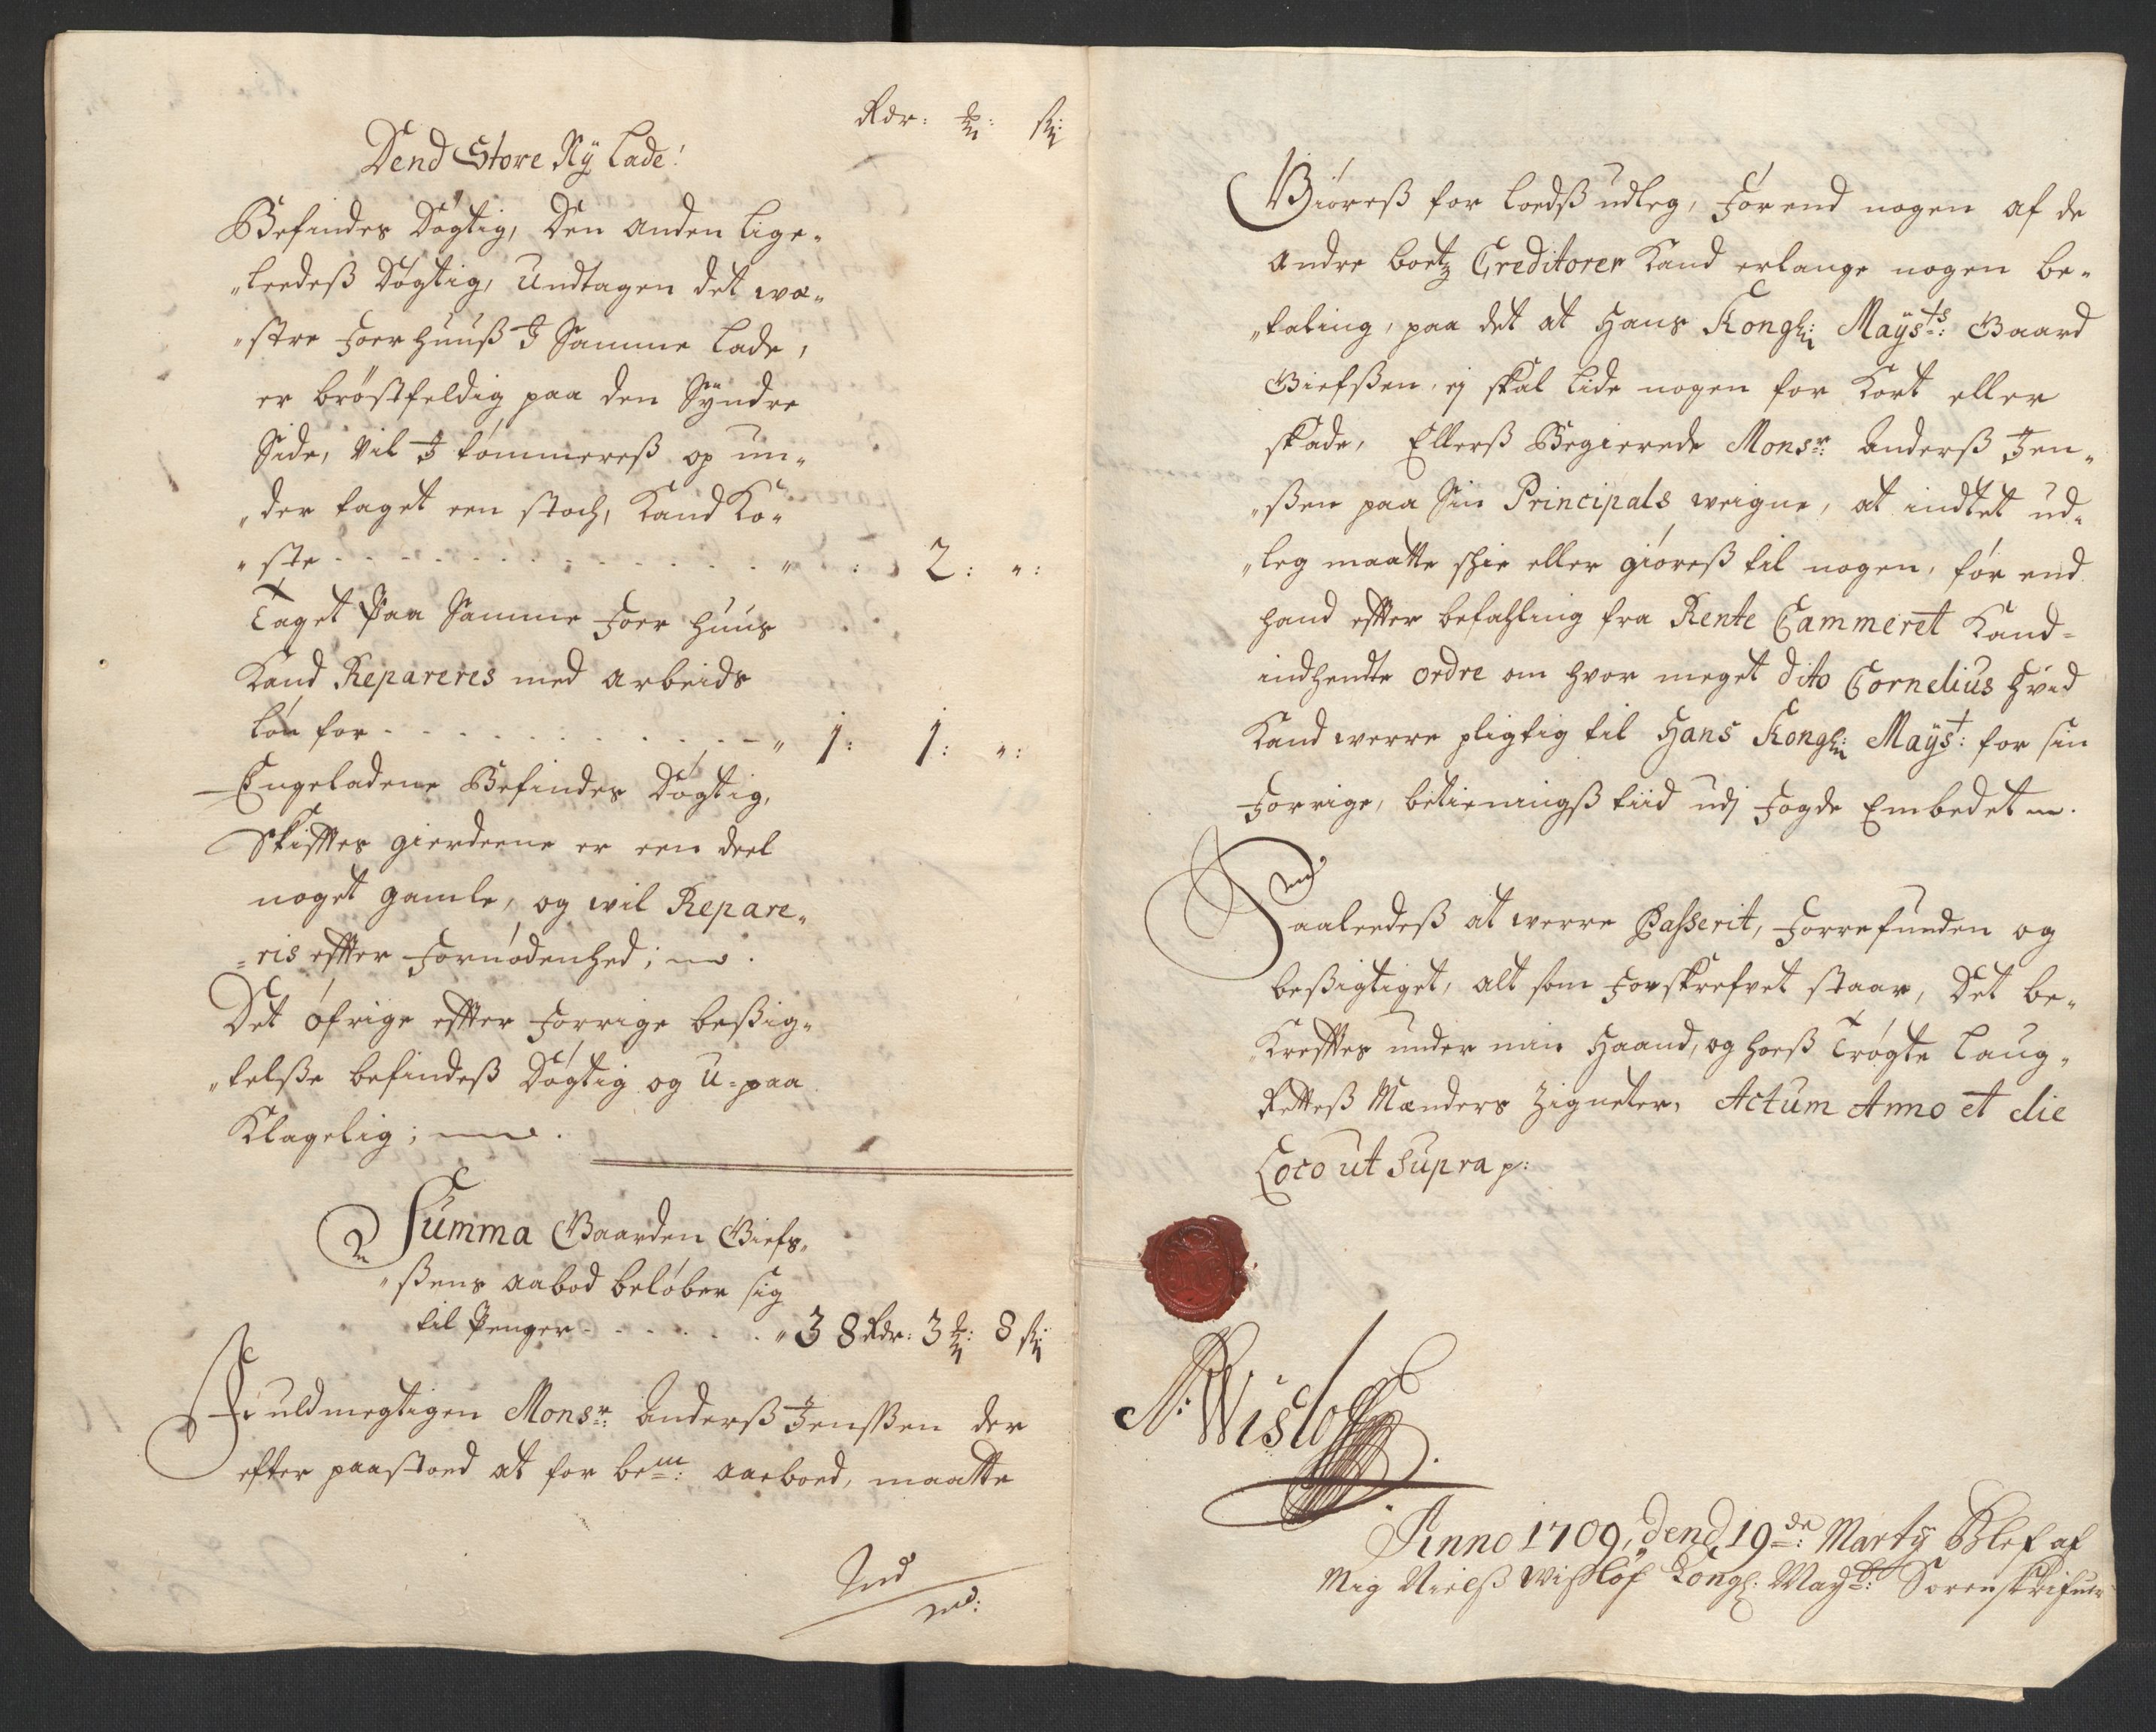 Rdr: ₰: ß:
Dend Store Ny Lade!
Befindes Dögtig, Den anden lige-
"leedeß Dögtig, Undtagen det wæ-
"stre Foer Huuß I Samme Lade,
er brøstfeldig paa den Syndre
Side, Vil I tømmereß op un-
"der taget een stoch, Kand Ko-
"ste - - - - - - " : 2: ":
Taget Paa Samme Foer Huus
Kand Repareres med Arbeids
løn for - - - - - " 1: 1: ":
Engeladene Befindes Dögtig,
Skifftes gierderne er een deel
noget gamle, og wil Repare-
=ris effter Fornødenhed;
Det øfrige effter Forrige beßig-
"telße befindeß Dögtig og U=paa
Klagelig;
Summa Gaarden Giefs-
"ßens Aabod beløber sig
til Penger - - - - - " 38 Rdr: 3 ₰: 8 ß
Fuldmegtigen Monsr: Anderß Jenßen der
efter paastoed at for bem: Aarboed, maatte
Giøreß for loedß udleg, Førend nogen af de
Andre boetz Creditorer Kand erlange nogen be-
"taling, paa det at Hans Kongl: Mayts: Gaard
Giefsßen, ej skal lide nogen for Kort eller
skade, Ellerß Begierede Monsr: Anderß Jen-
"ßen paa Sin Principals weigne, at indtet ud-
"leg maatte skie eller giøreß til nogen, før end
hand effter befahling fra Rente Cammeret Kand-
indhendte ordre om hvor meget dito Cornelius Hvid
Kand werre pligtig til Hans Kongl: Mayst: for sin
Forrige, betienningß tiid udj Fogde Embedet
Saaleedeß at werre Passerit, Forrefunden og
beßigtiget, alt som Forskrefvet staar, Det be-
"Kreffter under min Haand, og hoeß Trøgte Laug-
Retteß Mænders Zigneter, Actum Anno et die
Loco ut Supra p:
N: Wisløff
Anno 1709, dend 19de: Marty Blef af
Mig Nielß Wißløf Kongl: Mayts: Sorenskrifuer